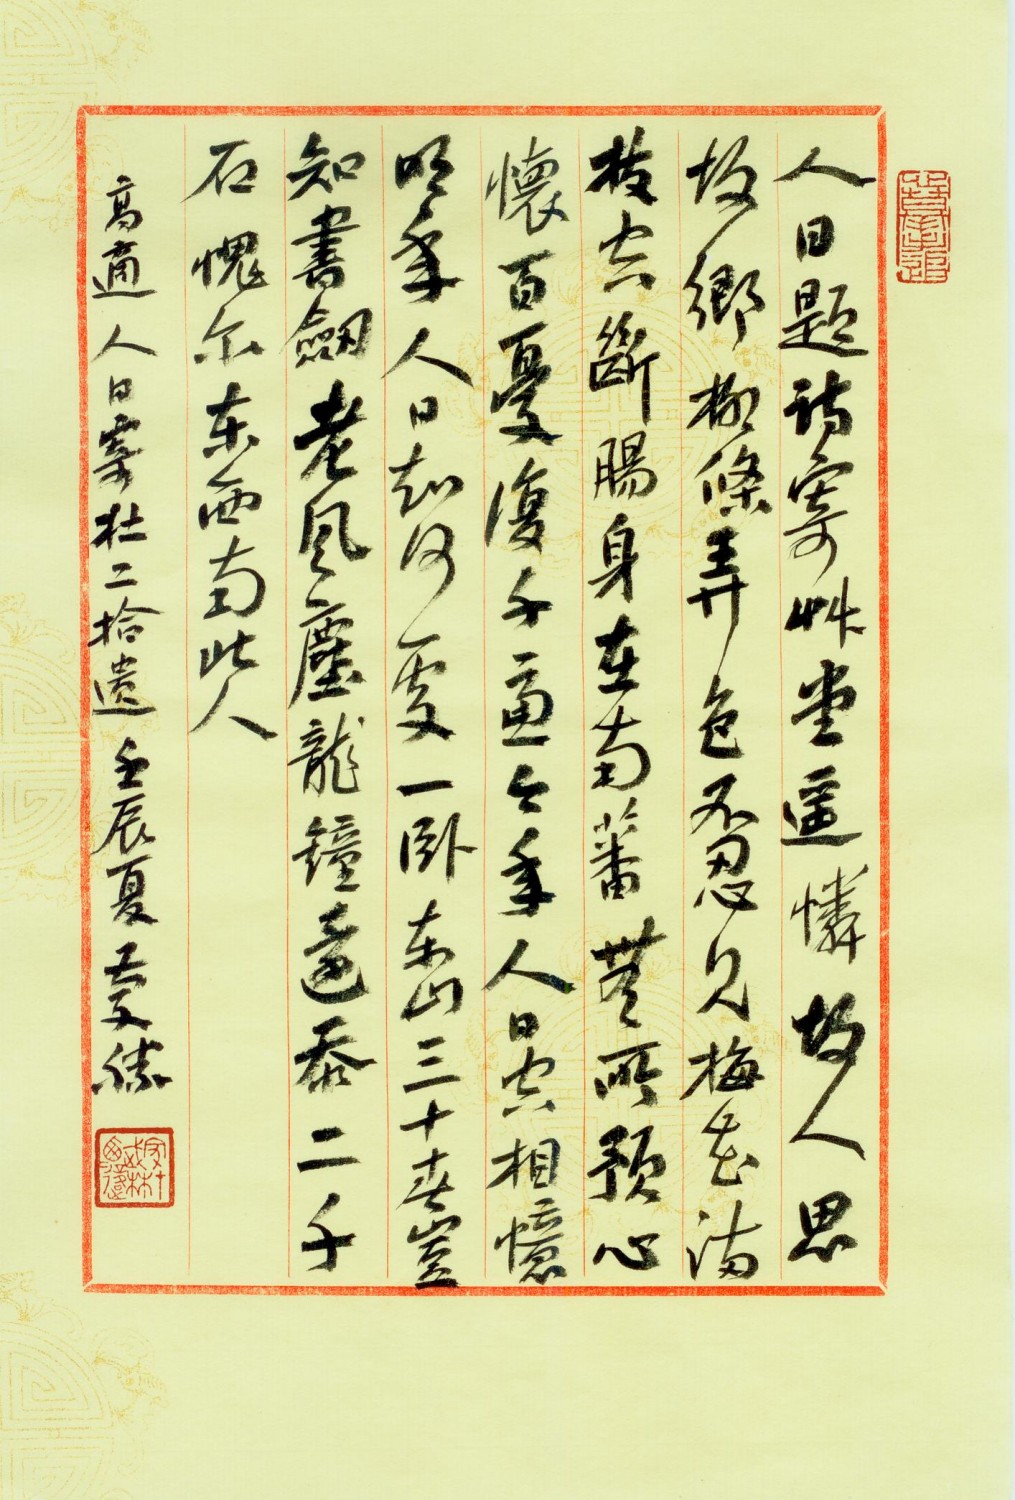 人日題詩寄艸堂遥憐故人思
故鄉柳條弄色不忍見梅花滿
枝空斷腸身在南蕃無所預心
懷百憂復千慮今年人日空相憶
明年人日知何處一卧东山三十春豈
知書劒老風塵龍鐘還忝二千
石愧尔东西南北人
高適人日寄杜二拾遗壬辰夏